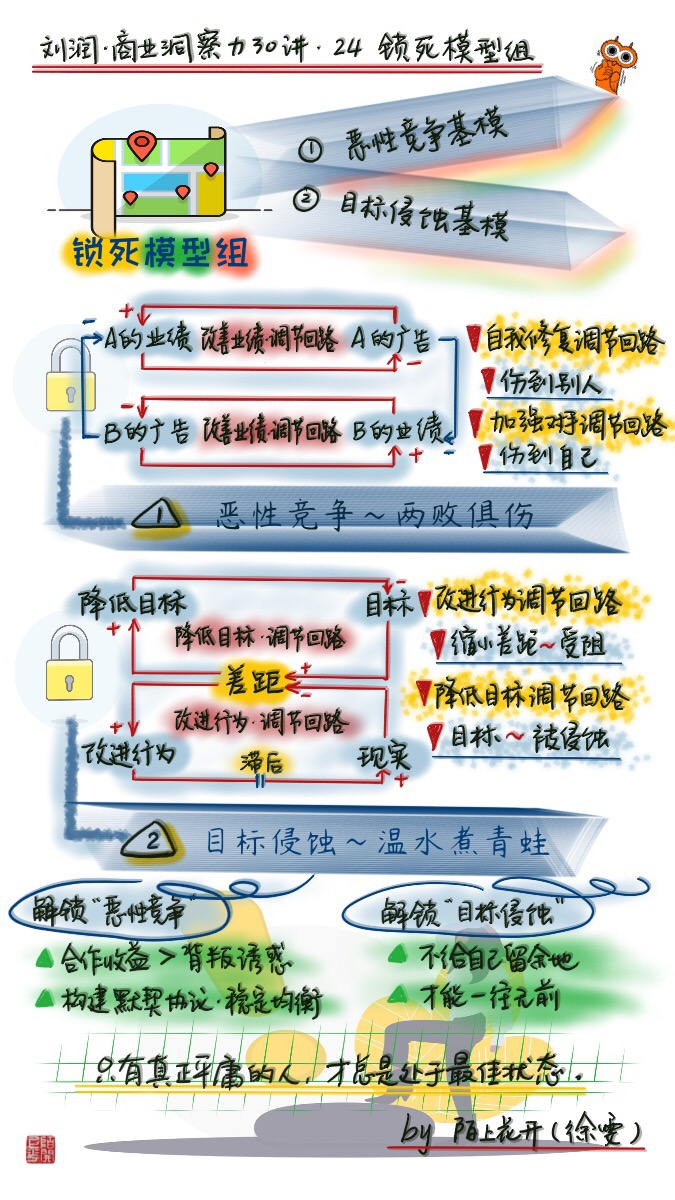 刘润·商业洞察力30讲·24 锁死模型组
① 恶性竞争基模
② 目标侵蚀基模
锁死模型组
+
-
A的业绩 改善业绩·调节回路 A的广告
-
自我修复调节回路
伤到别人
-
B的广告 改善业绩·调节回路 B的业绩
-
+
加强对手调节回路
伤到自己
1 恶性竞争~两败俱伤
降低目标
目标
-
+
降低目标·调节回路
差距
+
-
改进行为·调节回路
+
改进行为
滞后
现实
+
改进行为调节回路
缩小差距~受阻
降低目标调节回路
目标~被侵蚀
2 目标侵蚀~温水煮青蛙
解锁“恶性竞争”
合作收益>背叛诱惑
构建默契协议·稳定均衡
解锁“目标侵蚀”
不给自己留余地
才能一往无前
只有真正平庸的人,才总是处于最佳状态。
by 陌上花开(徐雯)